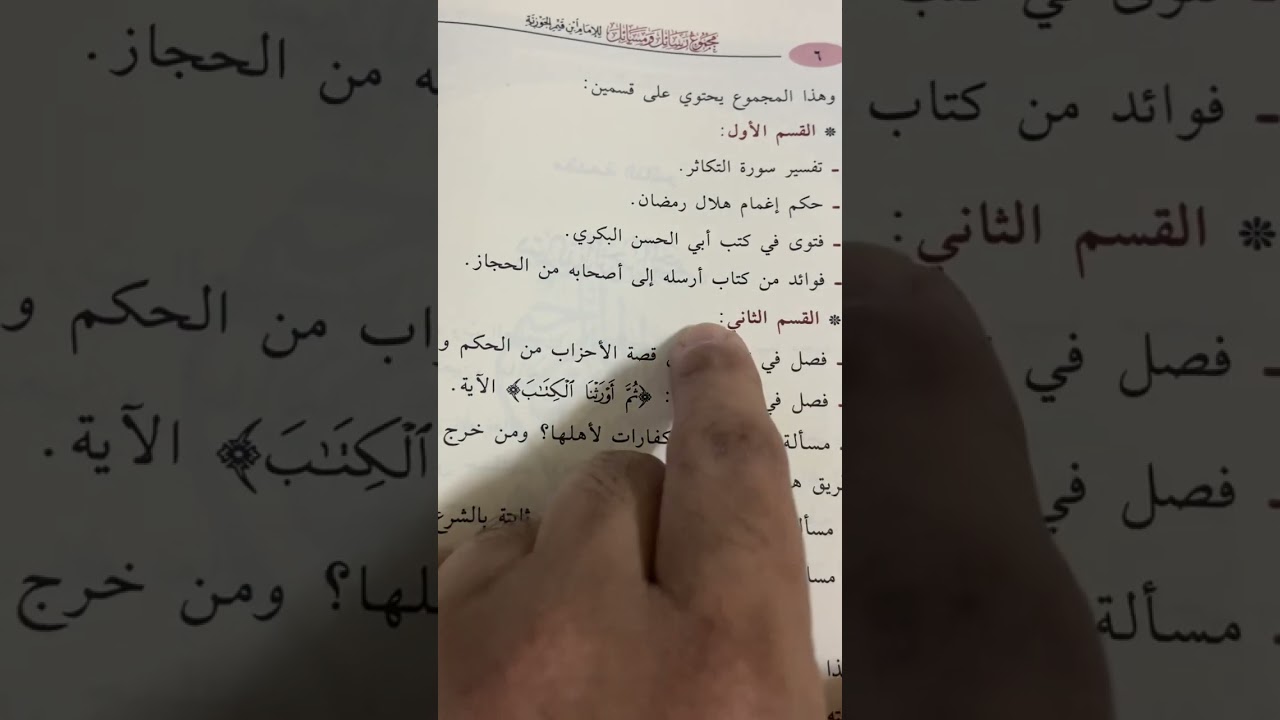 مجموع رسائل ومسائل للإمام ابن قيم الجوزية
٦
وهذا المجموع يحتوي على قسمين:
* القسم الأول:
- تفسير سورة التكاثر.
- حكم إغمام هلال رمضان.
- فتوى في كتب أبي الحسن البكري.
- فوائد من كتاب أرسله إلى أصحابه من الحجاز.
* القسم الثاني:
- فصل في قصة الأحزاب من الحكم و
- فصل في : ﴿ثُمَّ أَوْرَثْنَا ٱلْكِتَٰبَ﴾ الآية.
مسألة كفارات لأهلها؟ ومن خرج
ثابتة بالشرع